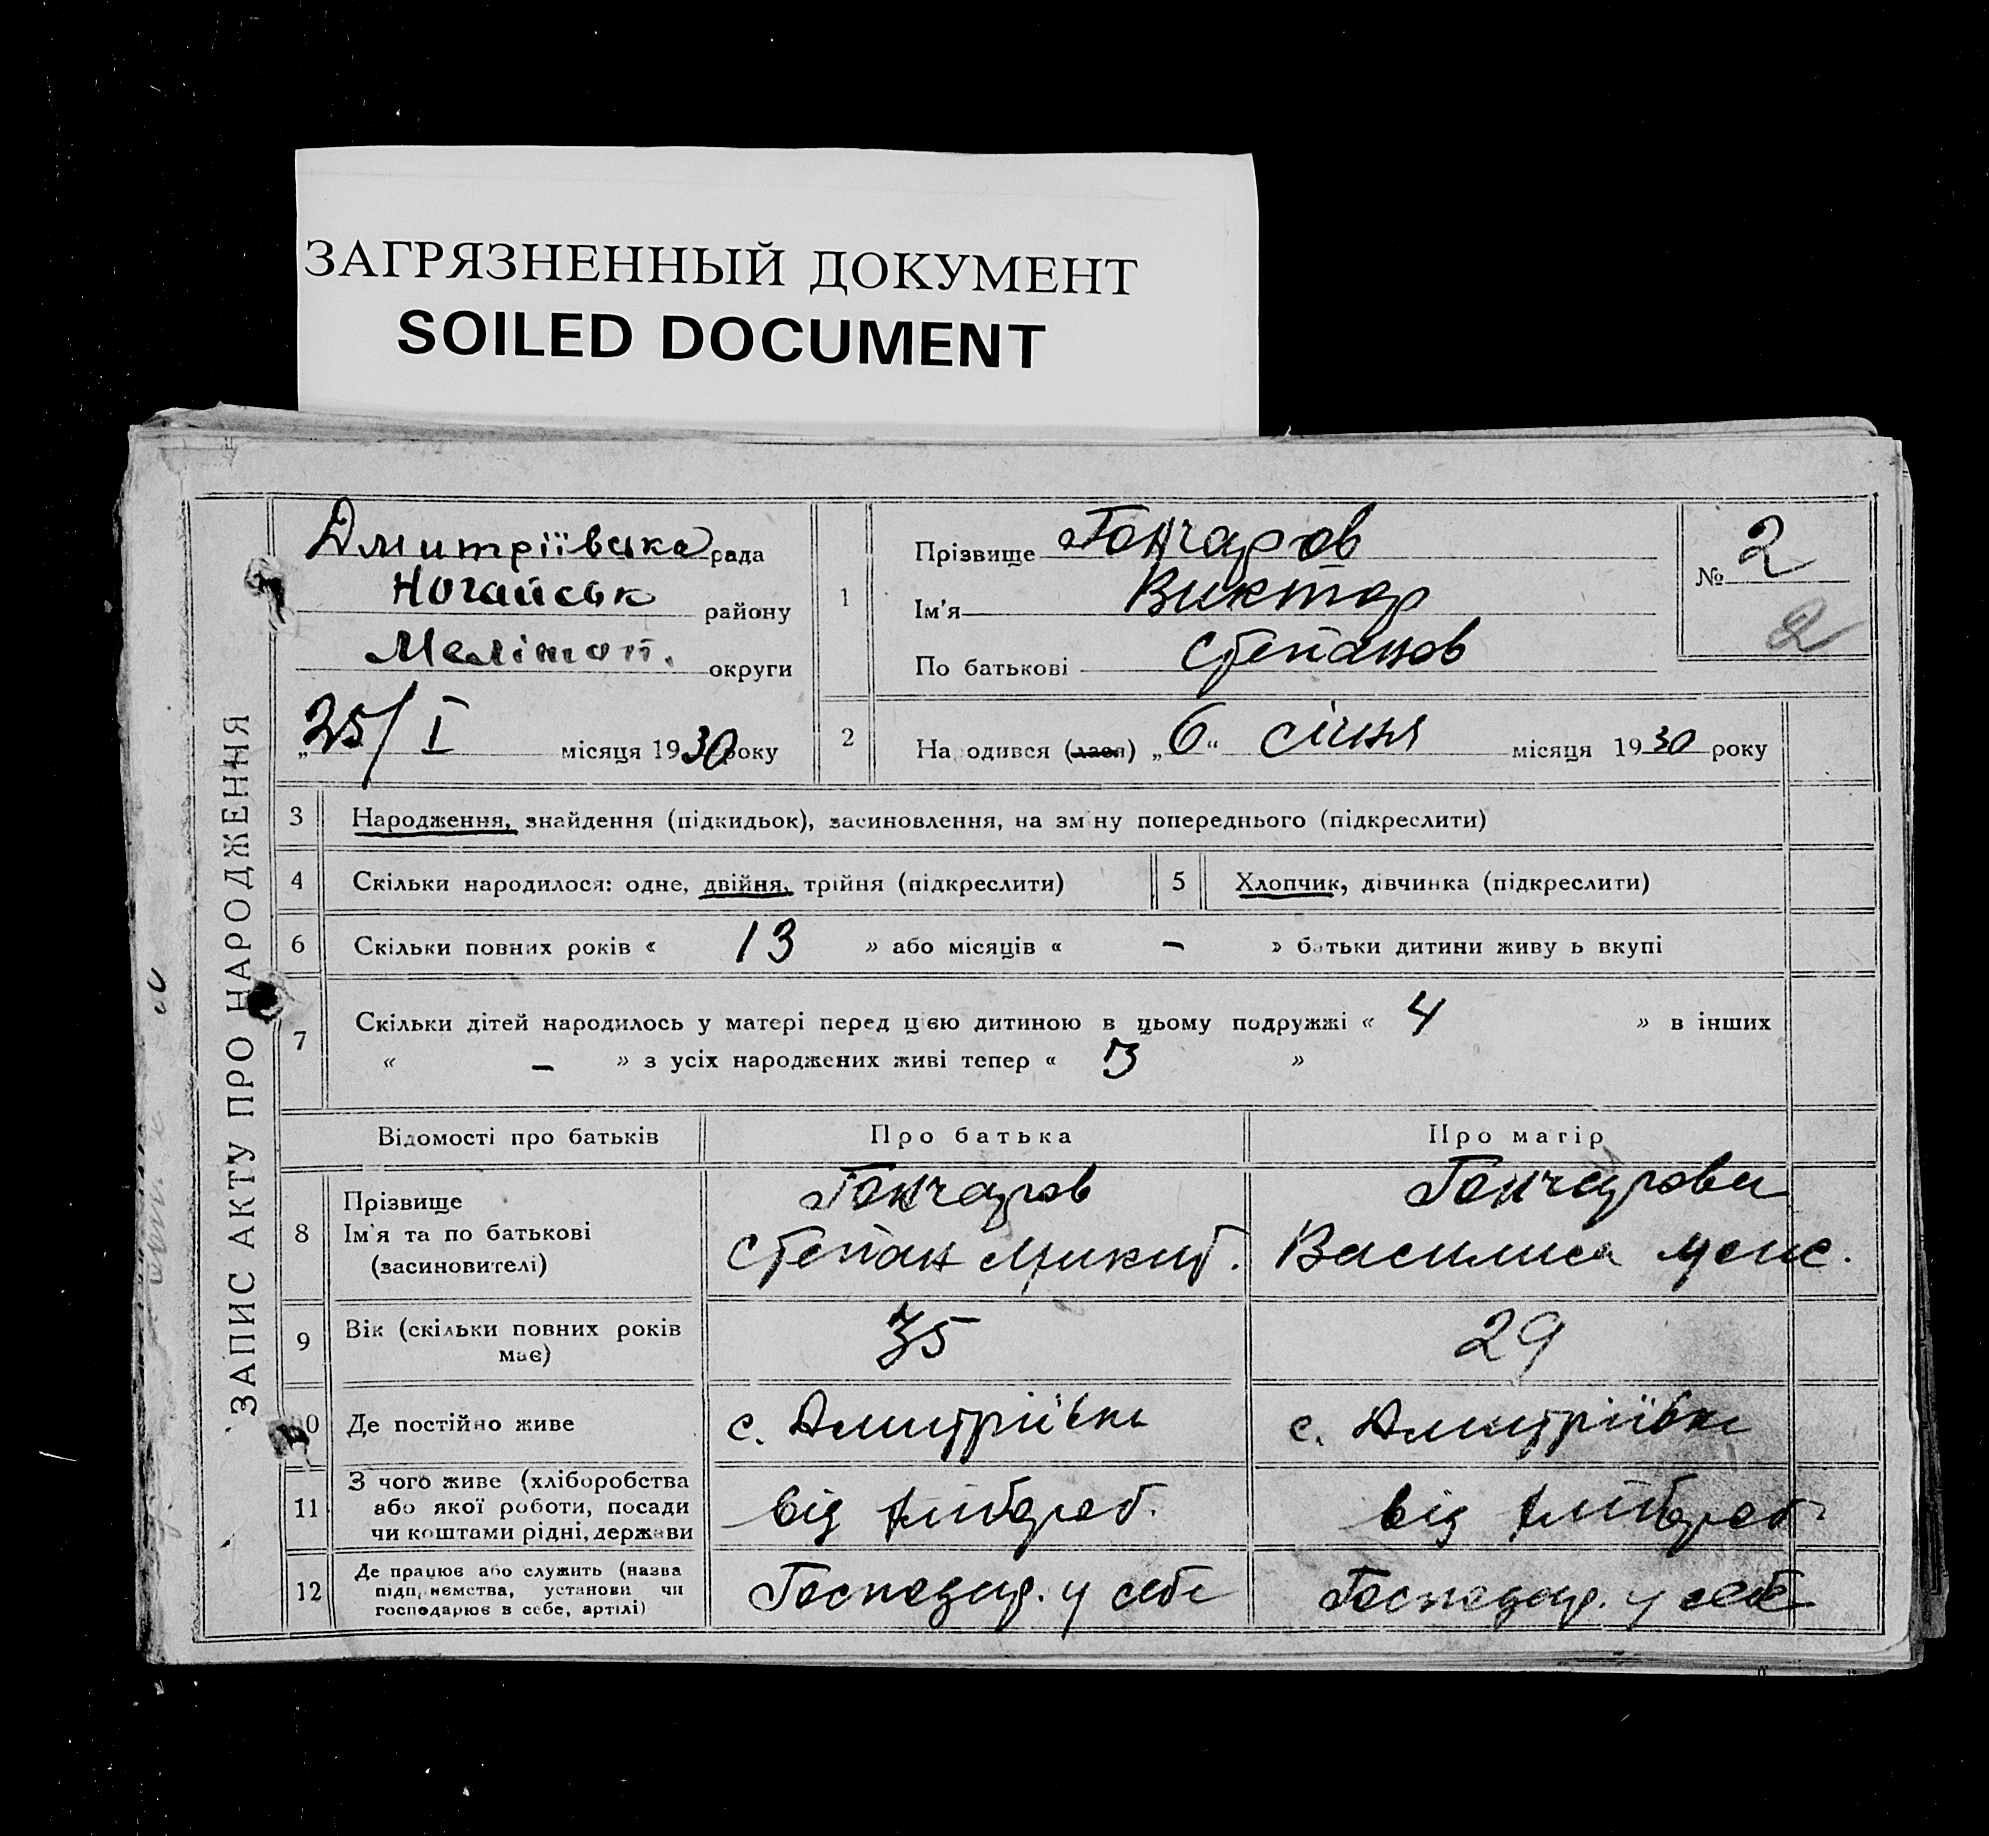 ЗАГРЯЗНЕННЫЙ ДОКУМЕНТ
SOILED DOCUMENT
ЗАПИС АКТУ ПРО НАРОДЖЕННЯ
Дмитріївська рада
Ногайськ району
Мелітоп. округи
„25/I місяця 1930 року
1
Прізвище Гончаров
Ім'я Виктор
По батькові Степанов
№ 2
2
2
Народився (лася) „6“ січня місяця 1930 року
3 Народження, знайдення (підкидьок), засиновлення, на зміну попереднього (підкреслити)
4 Скільки народилося: одне, двійня, трійня (підкреслити) 5 Хлопчик, дівчинка (підкреслити)
6 Скільки повних років « 13 » або місяців « - » батьки дитини живуть вкупі
7 Скільки дітей народилось у матері перед цією дитиною в цьому подружжі « 4 » в інших
« - » з усіх народжених живі тепер « 3 »
Відомості про батьків Про батька Про матір
8 Прізвище
Ім'я та по батькові
(засиновителі)
Гончаров
Степан Микит.
Гончарова
Василиса
9 Вік (скільки повних років
має)
35 29
10 Де постійно живе с. Дмитріївка с. Дмитріївка
11 З чого живе (хліборобства
або якої роботи, посади
чи коштами рідні, держави
від хлібороб. від хлібороб.
12 Де працює або служить (назва
підприємства, установи чи
господарює в себе, артілі)
Господар. у себе Господар. у себе